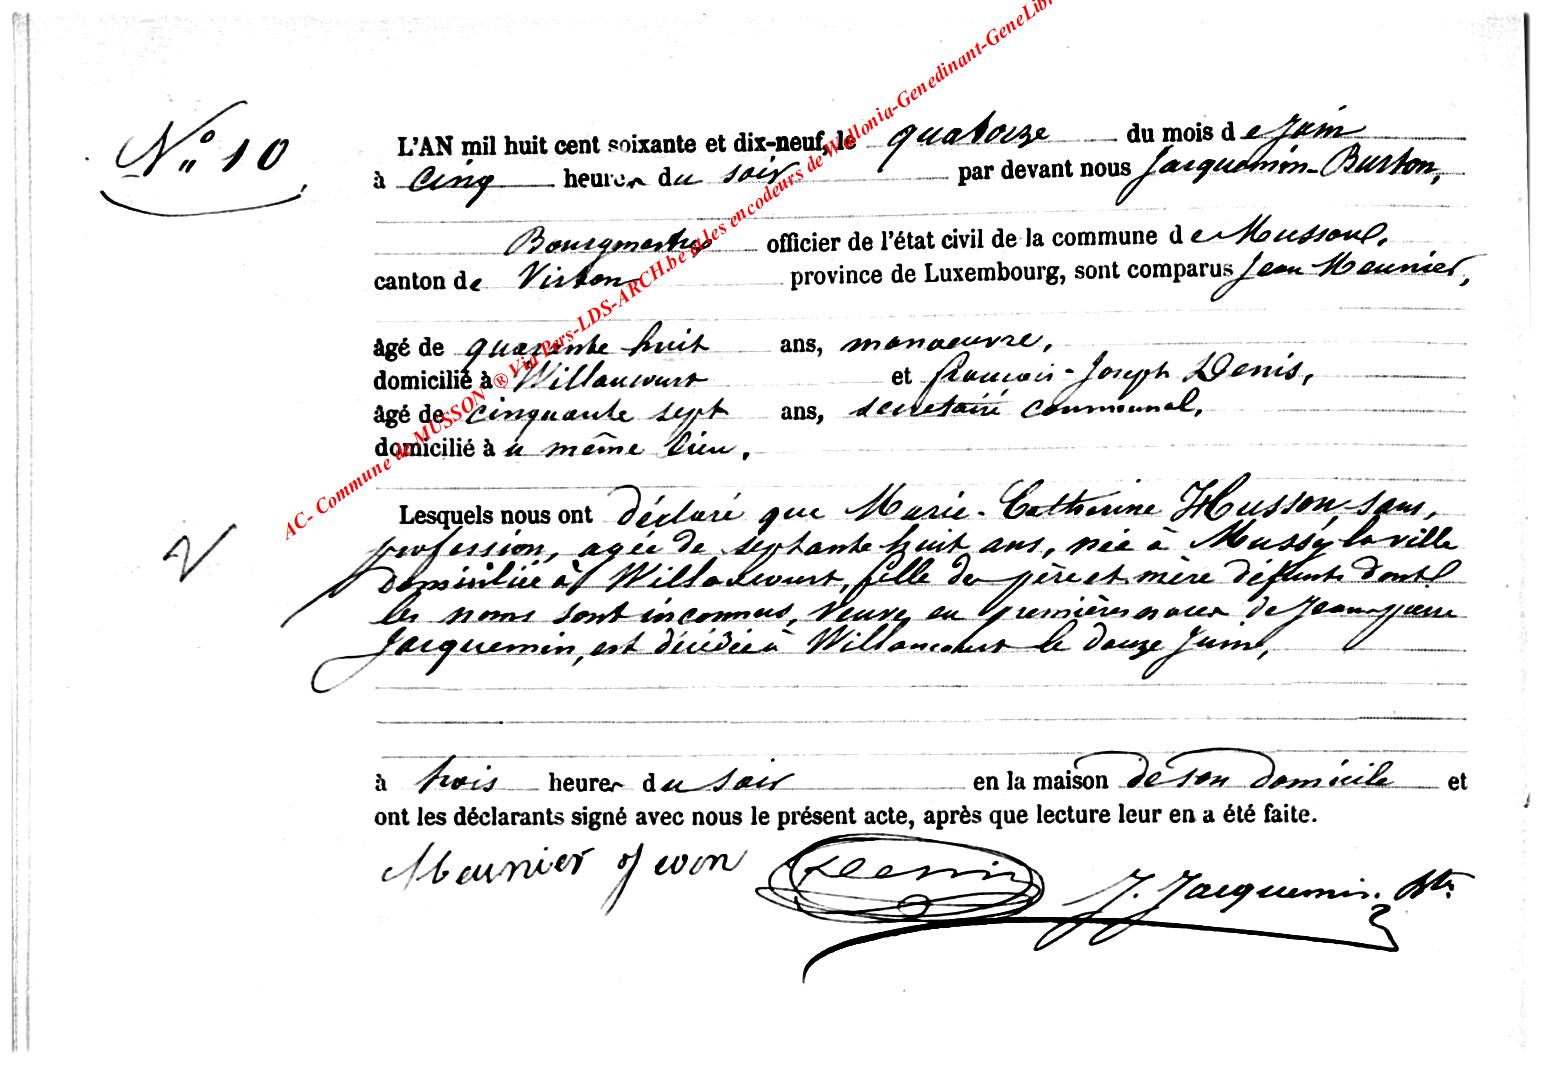 N° 10
L'AN mil huit cent soixante et dix-neuf, le quatorze du mois de Juin
à cinq heures du soir par devant nous Jacquemin-Burton,
Bourgmestre officier de l'état civil de la commune de Musson,
canton de Virton province de Luxembourg, sont comparus Jean Meunier,
âgé de quarante huit ans, manoeuvre,
domicilié à Willancourt et françois-Joseph Denis,
âgé de cinquante sept ans, secretaire communal,
domicilié à u même lieu,
Lesquels nous ont déclaré que Marie-Catherine Husson, sans,
profession, agée de septante huit ans, née à Mussy la ville
domiciliée à Willancourt, fille de père et mère défunts dont
les noms sont inconnus, Veuve en premières noces de Jean-pierre
Jacquemin, est décédée à Willancourt le douze Juin,
à trois heures du soir en la maison de son domicile et
ont les déclarants signé avec nous le présent acte, après que lecture leur en a été faite.
Meunier Jean Denis J. Jacquemin-
AC- Commune de MUSSON ® Via Pers-LDS-ARCH.be et les encodeurs de Wallonia-Genedinant-GeneLibr